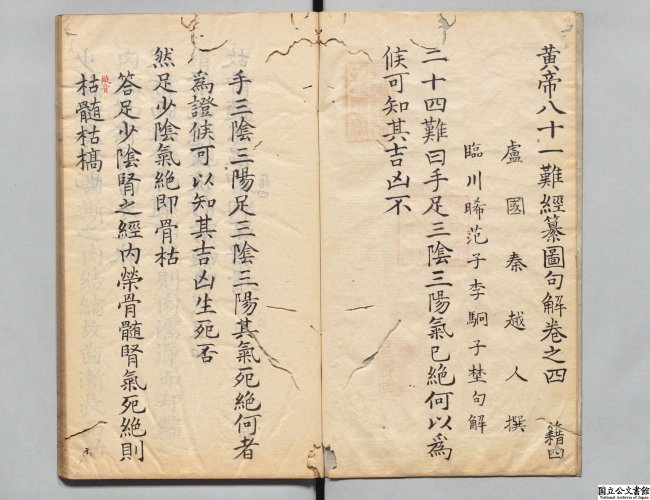 黃帝八十一難經纂圖句解卷之四 籍四
盧國秦越人撰
臨川晞范子李駉子埜句解
二十四難曰手足三陰三陽氣已絶何以為
候可知其吉凶不
手三陰三陽足三陰三陽其氣死絶何者
為證候可以知其吉凶生死否
然足少陰氣絶即骨枯
答足少陰腎之經内榮骨髓腎氣死絶則
小枯髓枯槁
国立公文書館
National Archives of Japan